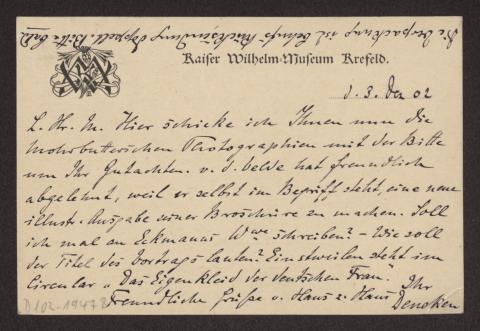 Die Verpackung ist behufs Rücksendung doppelt. Bitte
Kaiser Wilhelm-Museum Krefeld.
d. 3. Dez 02
L. Hr. M. Hier schicke ich Ihnen nun die
Mohrbutterschen Photographien mit der Bitte
um Ihr Gutachten. v. d. Velde hat freundlich
abgelehnt, weil er selbst im Begriff steht, eine neue
illustr. Ausgabe seiner Broschüre zu machen. Soll
ich mal an Eckmanns Wwe schreiben? - Wie soll
der Titel des Vortrags lauten? Einstweilen steht im
Circular „Das Eigenkleid der deutschen Frau."
Freundliche Grüße v. Haus z. Haus Ihr
Deneken